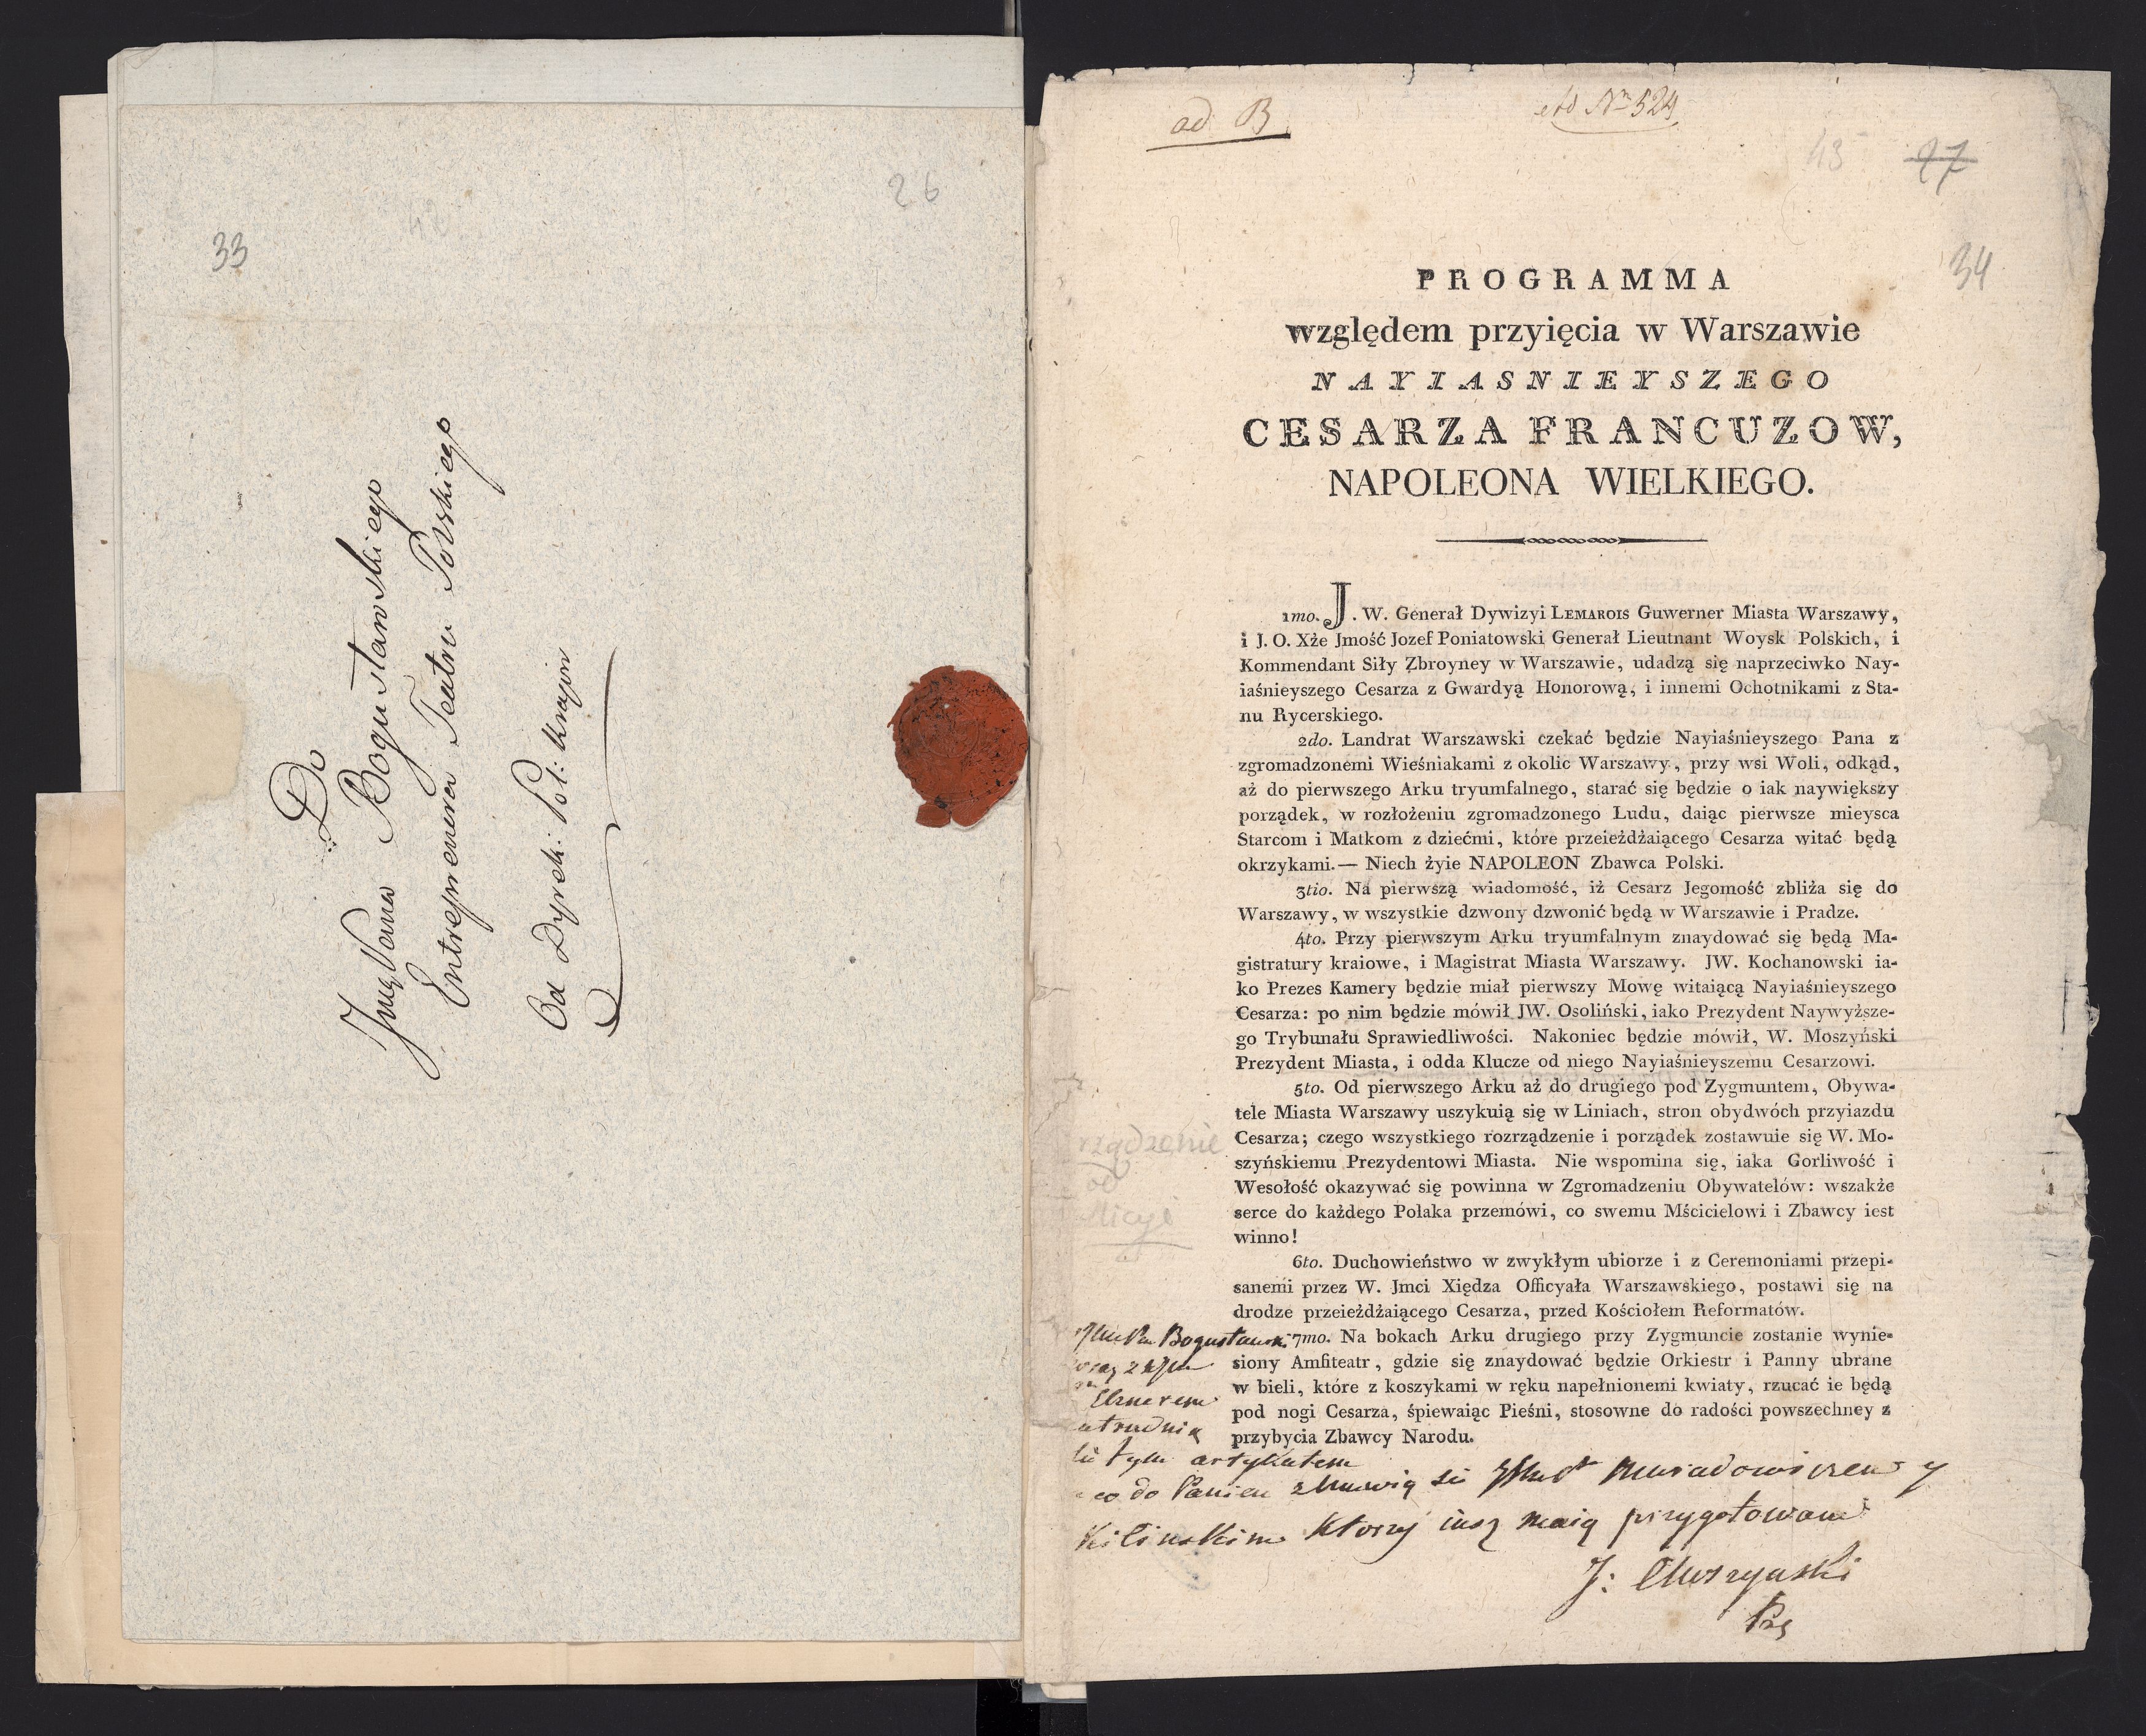 33
42
26
Do
Jmę Pana Bogusławskiego
Entreprenera Teatru Polskiego
Od Dyrek: Pol: Krajow
ad B
ad Nro 524
43
27
34
PROGRAMMA
względem przyięcia w Warszawie
NAYIASNIEYSZEGO
CESARZA FRANCUZOW,
NAPOLEONA WIELKIEGO.
1mo. J. W. Generał Dywizyi LEMAROIS Guwerner Miasta Warszawy,
i J. O. Xże Jmość Jozef Poniatowski Generał Lieutnant Woysk Polskich, i
Kommendant Siły Zbroyney w Warszawie, udadzą się naprzeciwko Nay-
iaśnieyszego Cesarza z Gwardyą Honorową, i innemi Ochotnikami z Sta-
nu Rycerskiego.
2do. Landrat Warszawski czekać będzie Nayiaśnieyszego Pana z
zgromadzonemi Wieśniakami z okolic Warszawy, przy wsi Woli, odkąd,
aż do pierwszego Arku tryumfalnego, starać się będzie o iak naywiększy
porządek, w rozłożeniu zgromadzonego Ludu, daiąc pierwsze mieysca
Starcom i Matkom z dziećmi, które przeieżdżaiącego Cesarza witać będą
okrzykami.— Niech żyie NAPOLEON Zbawca Polski.
3tio. Na pierwszą wiadomość, iż Cesarz Jegomość zbliża się do
Warszawy, w wszystkie dzwony dzwonić będą w Warszawie i Pradze.
4to. Przy pierwszym Arku tryumfalnym znaydować się będą Ma-
gistratury kraiowe, i Magistrat Miasta Warszawy. JW. Kochanowski ia-
ko Prezes Kamery będzie miał pierwszy Mowę witaiącą Nayiaśnieyszego
Cesarza: po nim będzie mówił JW. Osoliński, iako Prezydent Naywyższe-
go Trybunału Sprawiedliwości. Nakoniec będzie mówił, W. Moszyński
Prezydent Miasta, i odda Klucze od niego Nayiaśnieyszemu Cesarzowi.
5to. Od pierwszego Arku aż do drugiego pod Zygmuntem, Obywa-
tele Miasta Warszawy uszykuią się w Liniach, stron obydwóch przyiazdu
Cesarza; czego wszystkiego rozrządzenie i porządek zostawuie się W. Mo-
szyńskiemu Prezydentowi Miasta. Nie wspomina się, iaka Gorliwość i
Wesołość okazywać się powinna w Zgromadzeniu Obywatelów: wszakże
serce do każdego Polaka przemówi, co swemu Mścicielowi i Zbawcy iest
winno!
6to. Duchowieństwo w zwykłym ubiorze i z Ceremoniami przepi-
sanemi przez W. Jmci Xiędza Officyała Warszawskiego, postawi się na
drodze przeieżdżaiącego Cesarza, przed Kościołem Reformatów.
7mo. Na bokach Arku drugiego przy Zygmuncie zostanie wynie-
siony Amfiteatr, gdzie się znaydować będzie Orkiestr i Panny ubrane
w bieli, które z koszykami w ręku napełnionemi kwiaty, rzucać ie będą
pod nogi Cesarza, śpiewaiąc Pieśni, stosowne do radości powszechney z
przybycia Zbawcy Narodu.
rządzenie
od
licyi
Bogusławski
Elsnerem
atrudnią
tym artykułem
co do Panien zmówią się
Kilinskim ktorzy iusz maią przygotowane
J: Moszynski
Prs